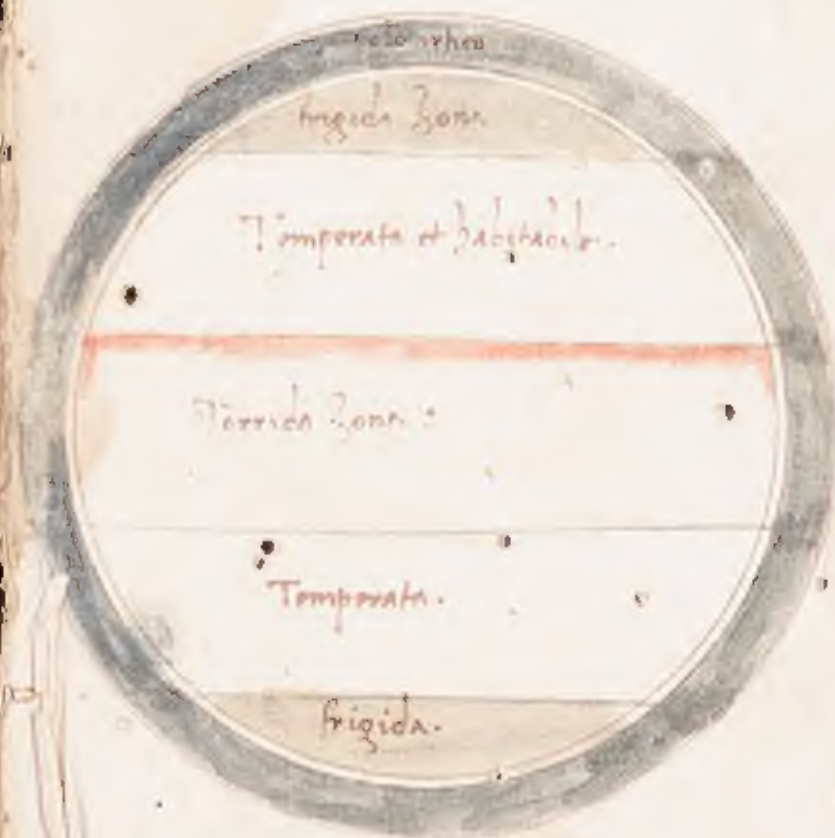 frigida Zona
Temperata et habitabile.
Torrida Zona :
Temperata.
frigida.